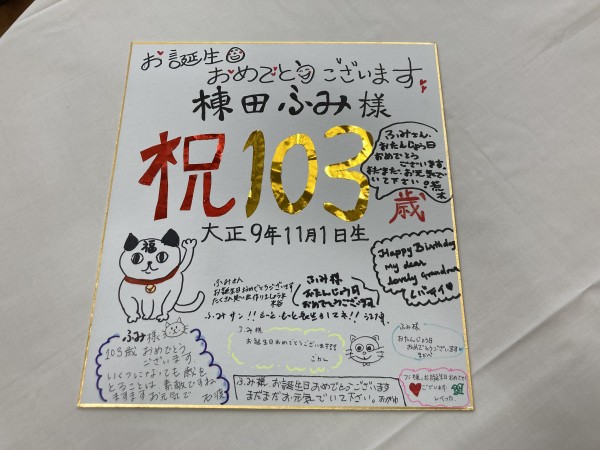 お誕生日
おめでとうございます
棟田ふみ様
祝103歳
大正9年11月1日生
ふみさん、
おたんじょう日
おめでとう
ございます。
まだまだ、お元気で
いて下さい。荒木
福
ふみさん
お誕生日おめでとうございます
ふみ様
おたんじょう日
おめでとうございます
Happy Birthday
my dear
lovely grandma
ふみサン!!
ふみ様
103歳 おめでとう
ございます
いくつになっても歳を
とることは 素敵ですね
ますますお元気で
ふみ様
お誕生日おめでとうございます
ふみ様
おたんじょう日
おめでとうございます
ふみ様、お誕生日おめでとうございます
まだまだお元気でいて下さい。おがわ
ふみ様、お誕生日おめでとう
ございます
レベッカ